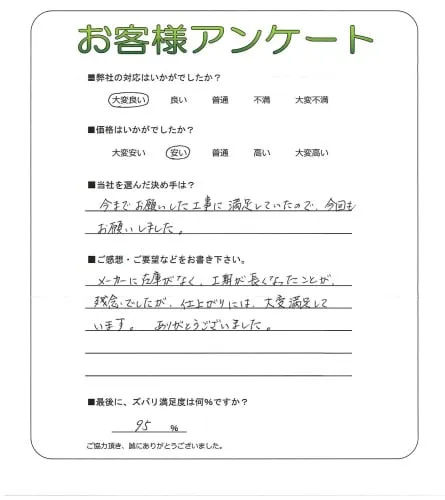 お客様アンケート
■弊社の対応はいかがでしたか?
大変良い 良い 普通 不満 大変不満
■価格はいかがでしたか?
大変安い 安い 普通 高い 大変高い
■当社を選んだ決め手は?
今までお願いした工事に満足していたので、今回も
お願いしました。
■ご感想・ご要望などをお書き下さい。
メーカーに在庫がなく、工期が長くなったことが、
残念でしたが、仕上がりには、大変満足して
います。 ありがとうございました。
■最後に、ズバリ満足度は何%ですか?
95 %
ご協力頂き、誠にありがとうございました。